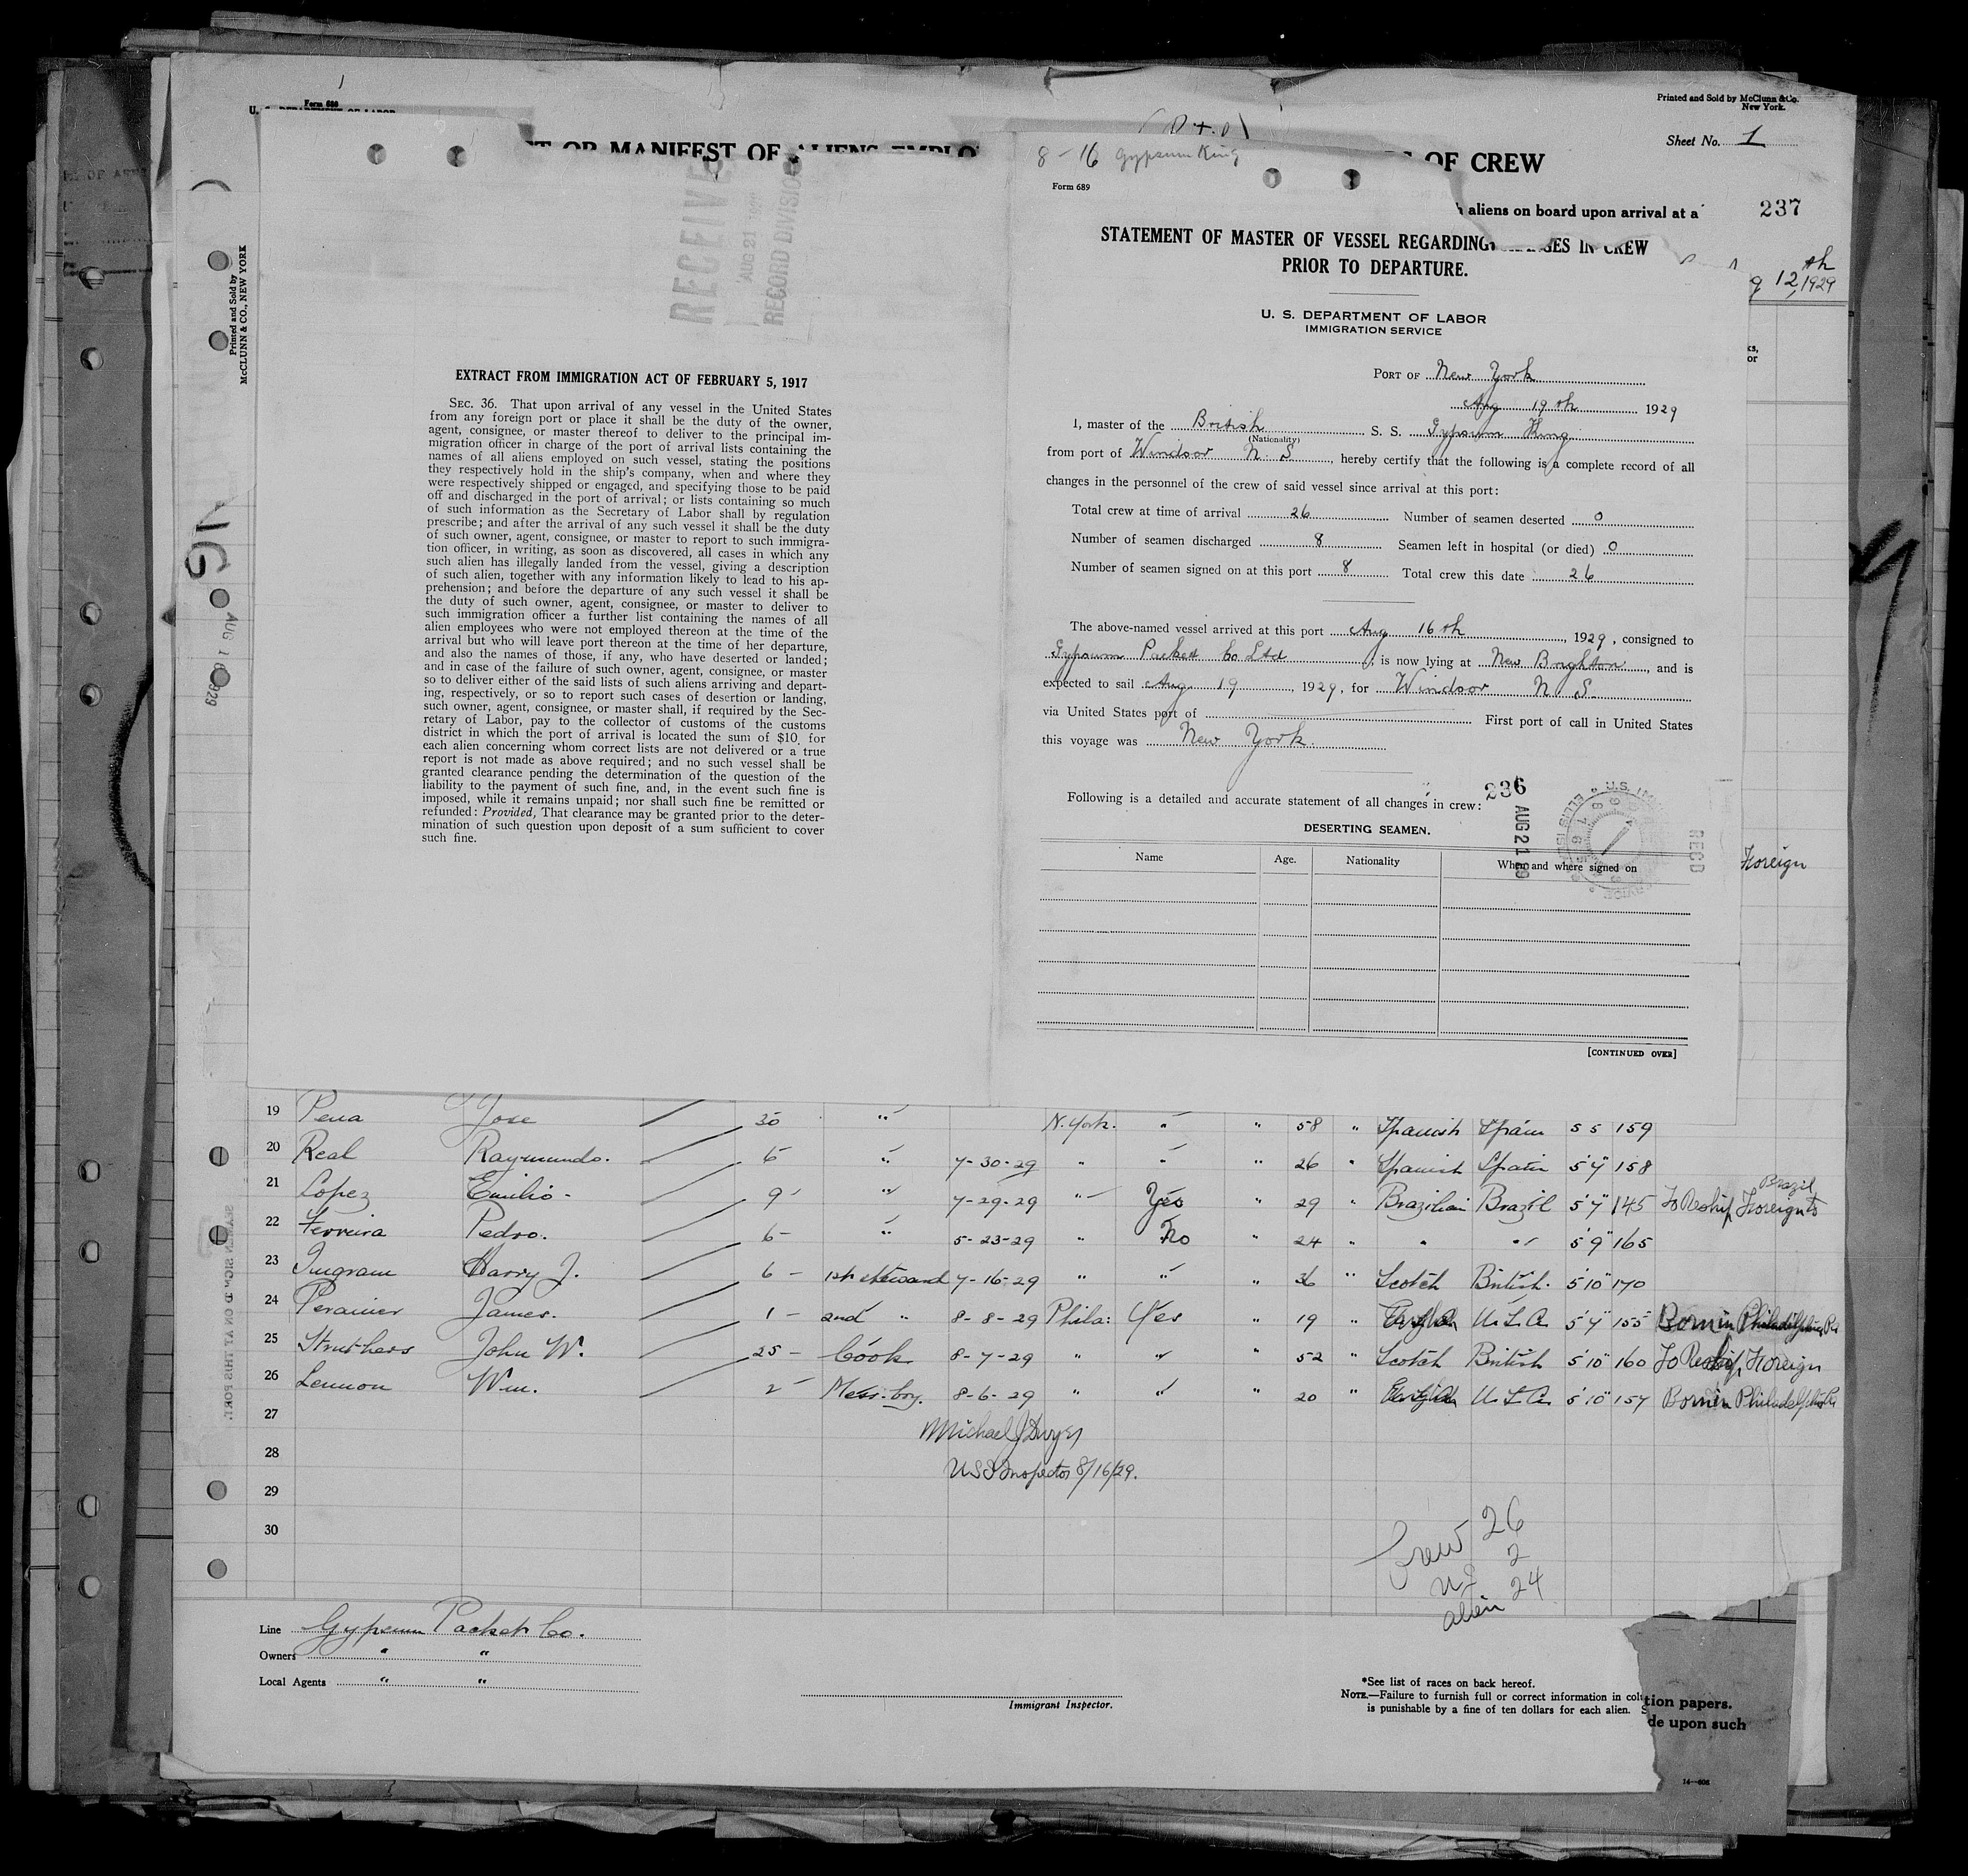 1
Form 686
Printed and Sold by McClunn & Co.
New York.
Sheet No. 1
OR MANIFEST OF ALIENS EMPLO
OF CREW
aliens on board upon arrival at a
237
12th, 1929
Printed and Sold by
McCLUNN & CO., NEW YORK
RECEIVE
AUG 21
RECORD DIVISIO
EXTRACT FROM IMMIGRATION ACT OF FEBRUARY 5, 1917
SEC. 36. That upon arrival of any vessel in the United States
from any foreign port or place it shall be the duty of the owner,
agent, consignee, or master thereof to deliver to the principal im-
migration officer in charge of the port of arrival lists containing the
names of all aliens employed on such vessel, stating the positions
they respectively hold in the ship's company, when and where they
were respectively shipped or engaged, and specifying those to be paid
off and discharged in the port of arrival; or lists containing so much
of such information as the Secretary of Labor shall by regulation
prescribe; and after the arrival of any such vessel it shall be the duty
of such owner, agent, consignee, or master to report to such immigra-
tion officer, in writing, as soon as discovered, all cases in which any
such alien has illegally landed from the vessel, giving a description
of such alien, together with any information likely to lead to his ap-
prehension; and before the departure of any such vessel it shall be
the duty of such owner, agent, consignee, or master to deliver to
such immigration officer a further list containing the names of all
alien employees who were not employed thereon at the time of the
arrival but who will leave port thereon at the time of her departure,
and also the names of those, if any, who have deserted or landed;
and in case of the failure of such owner, agent, consignee, or master
so to deliver either of the said lists of such aliens arriving and depart-
ing, respectively, or so to report such cases of desertion or landing,
such owner, agent, consignee, or master shall, if required by the Sec-
retary of Labor, pay to the collector of customs of the customs
district in which the port of arrival is located the sum of $10 for
each alien concerning whom correct lists are not delivered or a true
report is not made as above required; and no such vessel shall be
granted clearance pending the determination of the question of the
liability to the payment of such fine, and, in the event such fine is
imposed, while it remains unpaid; nor shall such fine be remitted or
refunded: Provided, That clearance may be granted prior to the deter-
mination of such question upon deposit of a sum sufficient to cover
such fine.
8 - 16 Gypsum King
Form 689
STATEMENT OF MASTER OF VESSEL REGARDING CHANGES IN CREW
PRIOR TO DEPARTURE.
U. S. DEPARTMENT OF LABOR
IMMIGRATION SERVICE
PORT OF New York
Aug 19th 1929
I, master of the British S. S. Gypsum King
(Nationality)
from port of Windsor N. S., hereby certify that the following is a complete record of all
changes in the personnel of the crew of said vessel since arrival at this port:
Total crew at time of arrival 26 Number of seamen deserted 0
Number of seamen discharged 8 Seamen left in hospital (or died) 0
Number of seamen signed on at this port 8 Total crew this date 26
The above-named vessel arrived at this port Aug 16th, 1929, consigned to
Gypsum Packet Co Ltd, is now lying at New Brighton, and is
expected to sail Aug 19, 1929, for Windsor N. S.
via United States port of First port of call in United States
this voyage was New York.
Following is a detailed and accurate statement of all changes in crew:
236
AUG 21 29
RECD
DESERTING SEAMEN.
Name Age. Nationality When and where signed on
[CONTINUED OVER]
Foreign
19 Pena Jose 30 " N. York. " " 58 " Spanish Spain 5 5 159
20 Real Raymundo. 5 " 7-30-29 " " " 26 " Spanish Spain 5'4" 158
21 Lopez Emilio - 9 - " 7-29-29 " Yes " 29 " Brazilian Brazil 5'7" 145 To Reship Foreign to Brazil
22 Ferreira Pedro. 6 - " 5-23-29 " No " 24 " " " 5'9" 165
23 Ingram Harry J. 6 - 1st steward 7-16-29 " " " 36 " Scotch British. 5'10" 170
24 James. 1 - 2nd " 8-8-29 Phila: Yes " 19 " U.S.A. 5'7" 155 Born in Philadelphia Pa
25 Struthers John W. 25 - Cook 8-7-29 " " " 52 " Scotch British 5'10" 160 To Reship Foreign
26 Lennon Wm. 2 - Mess-boy. 8-6-29 " " " 20 " U.S.A. 5'10" 157 Born in Philadelphia Pa
27 Michael J Dwyer
28 US Inspector 8/16/29.
29
30
Crew 26
US 2
alien 24
Line Gypsum Packet Co.
Owners " "
Local Agents " "
Immigrant Inspector.
*See list of races on back hereof.
NOTE.—Failure to furnish full or correct information in col
is punishable by a fine of ten dollars for each alien. S
tion papers.
de upon such